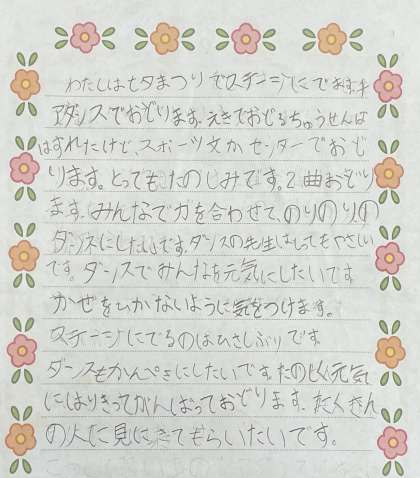 わたしは七夕まつりでステージにでます。キ
アダンスでおどります。えきでおどるちゅうせんは
はずれたけど、スポーツ文かセンターでおど
ります。とってもたのしみです。2曲おどり
ます。みんなで力を合わせて、のりのりの
ダンスにしたいです。ダンスの先生はとてもやさしい
です。ダンスでみんなを元気にしたいです
かぜをひかないように気をつけます。
ステージにでるのはひさしぶりです。
ダンスもかんぺきにしたいです。たのしく元気
にはりきってがんばっておどります。たくさん
の人に見にきてもらいたいです。